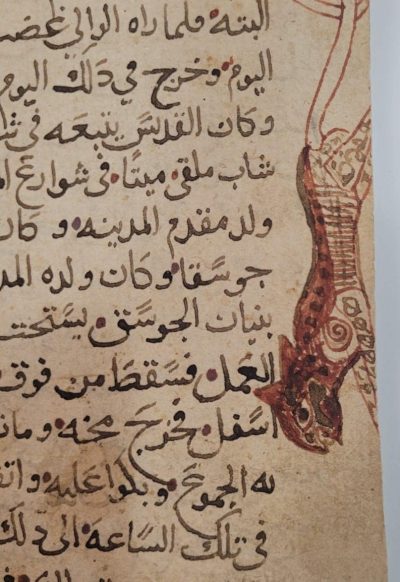 البته فلما راه الوالي غضب
اليوم وخرج في ذلك اليوم
وكان القدس يتبعه في
شاب ملقى ميتا في شوارع
ولد مقدم المدينه وكان
جوسقا وكان ولده
بنيان الجوسق يستحث
العمل فسقط من فوق
اسفل فخرج مخه ومات
به الجموع وبكوا عليه
في تلك الساعه الى ذلك